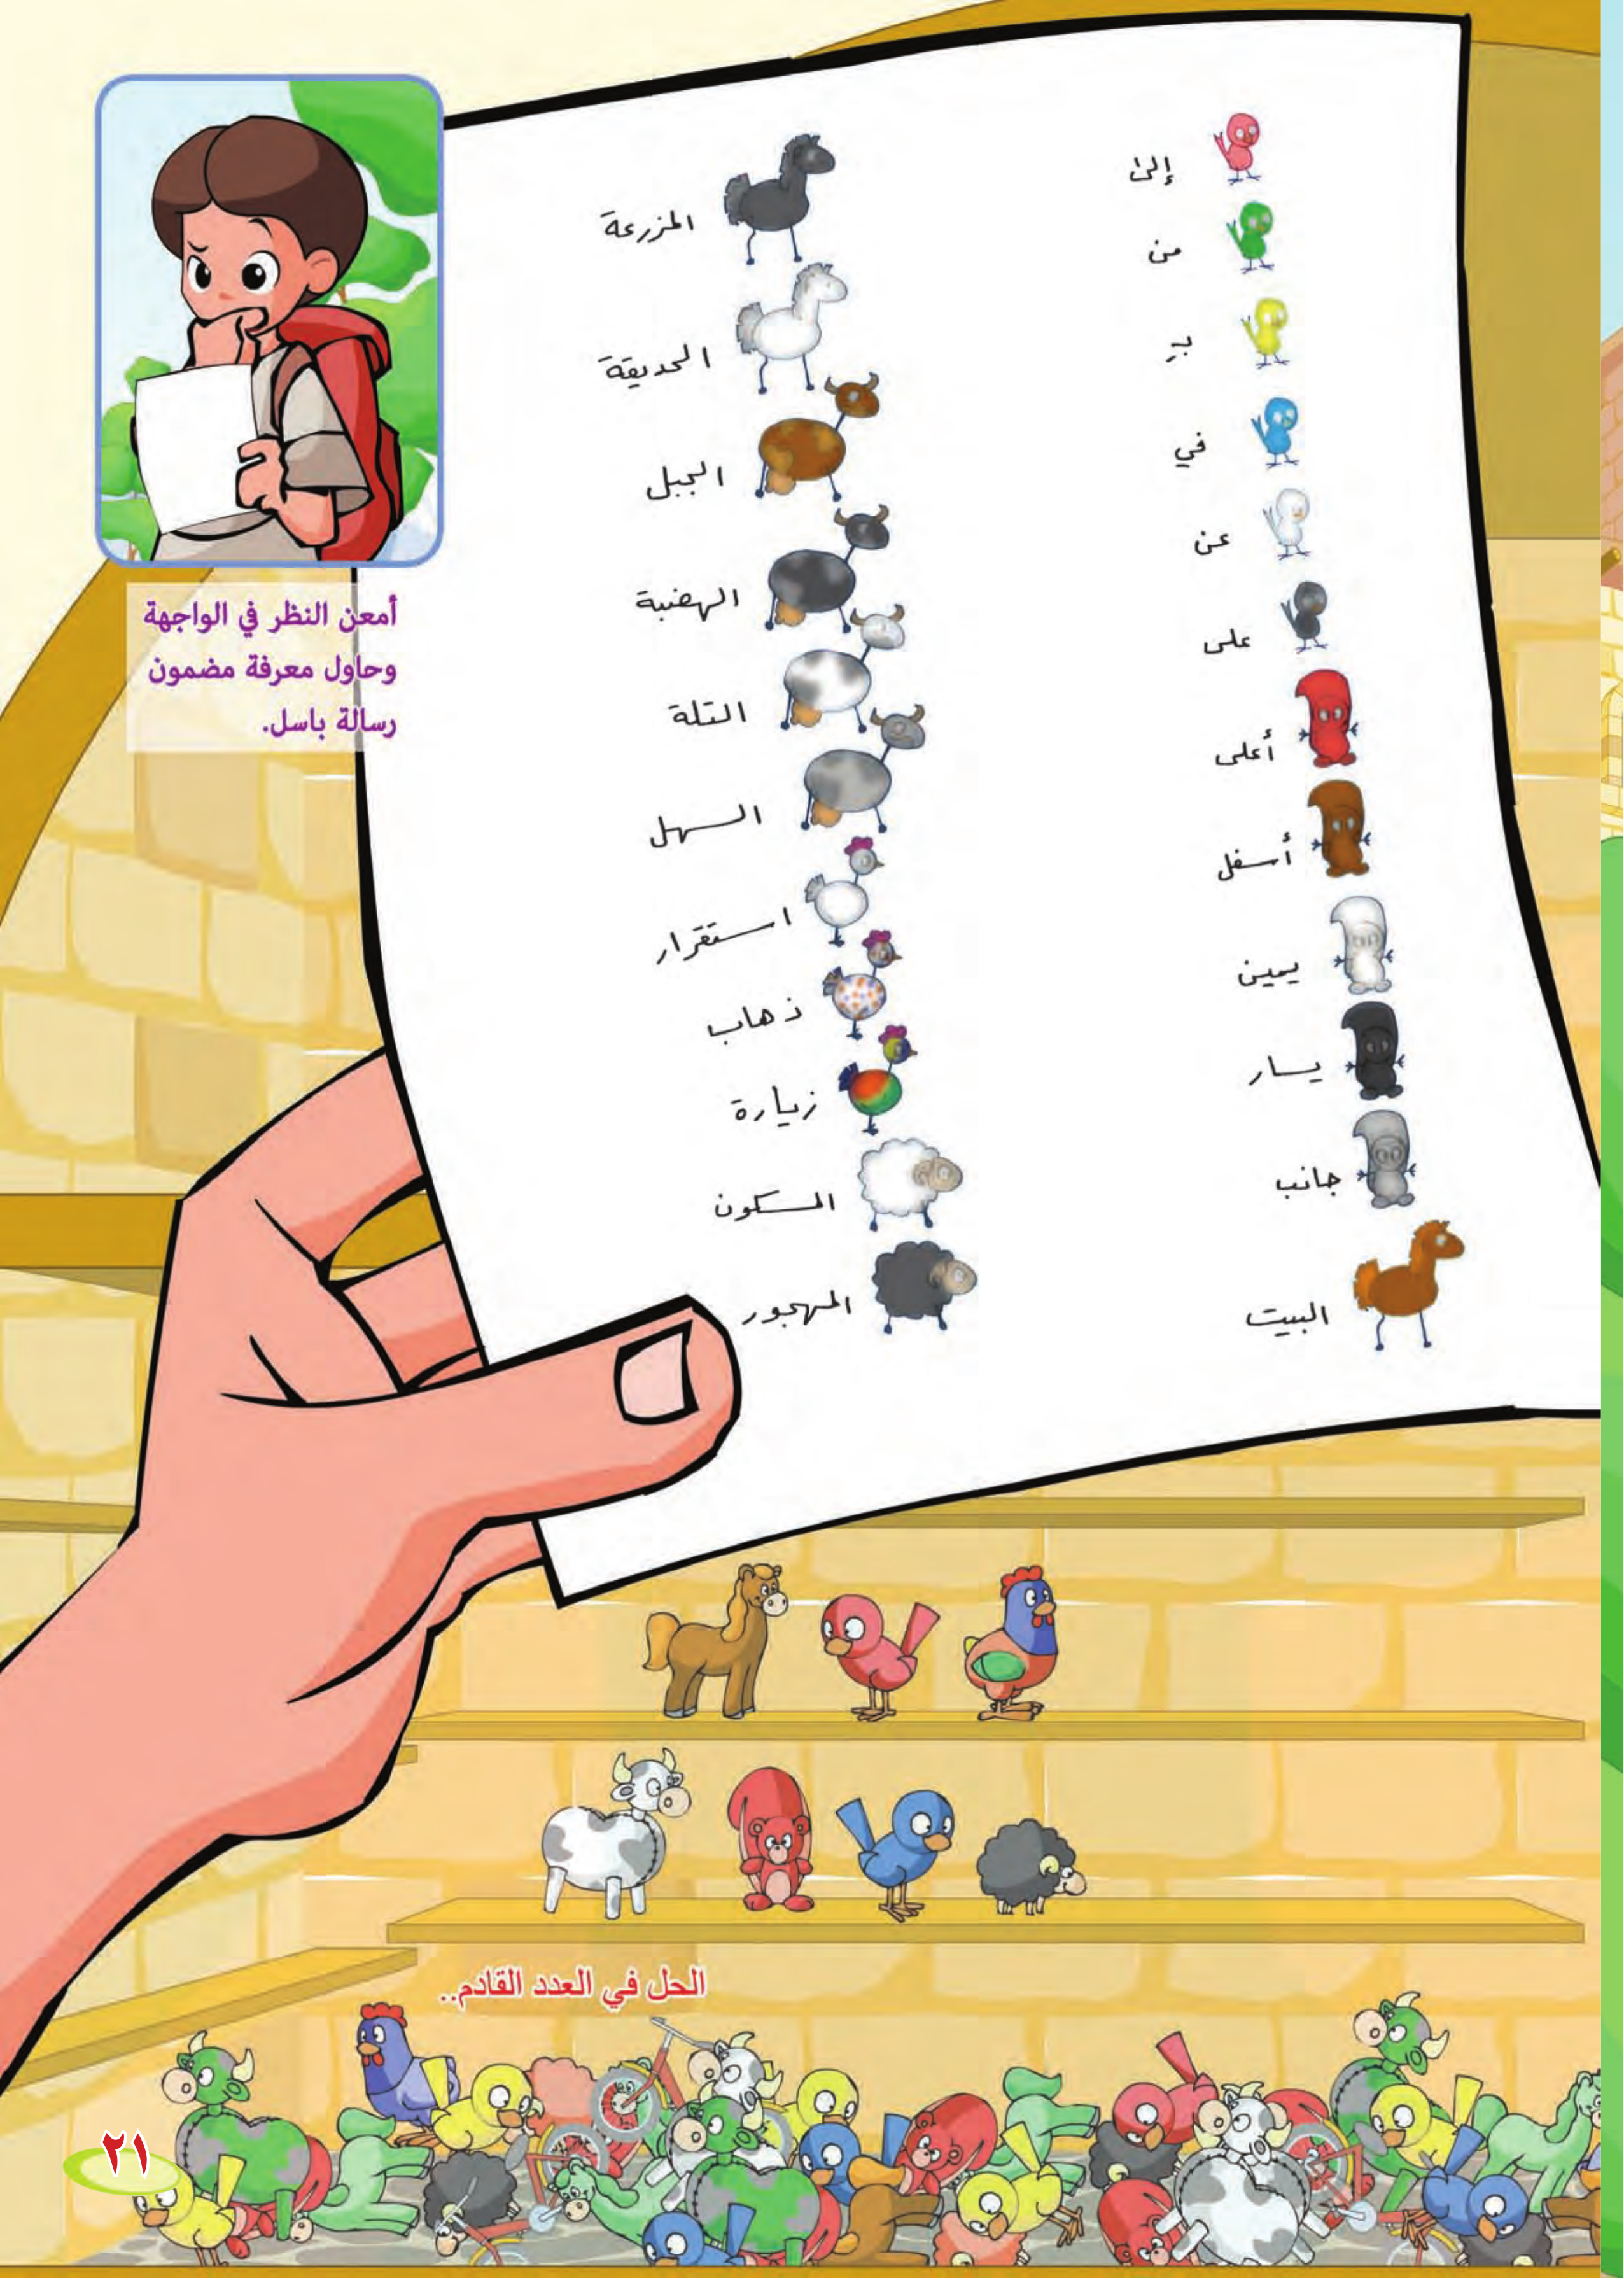 إلىٰ
من
بـ
في
عن
على
أعلى
أسفل
يمين
يسار
جانب
البيت
المزرعة
الحديقة
الجبل
الهضبة
التلة
السهل
استقرار
ذهاب
زيارة
المسكون
المهجور
أمعن النظر في الواجهة
وحاول معرفة مضمون
رسالة باسل.
الحل في العدد القادم..
٢١